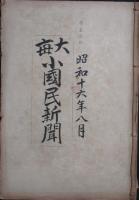 昭和十六年八月
大毎
小國民新聞